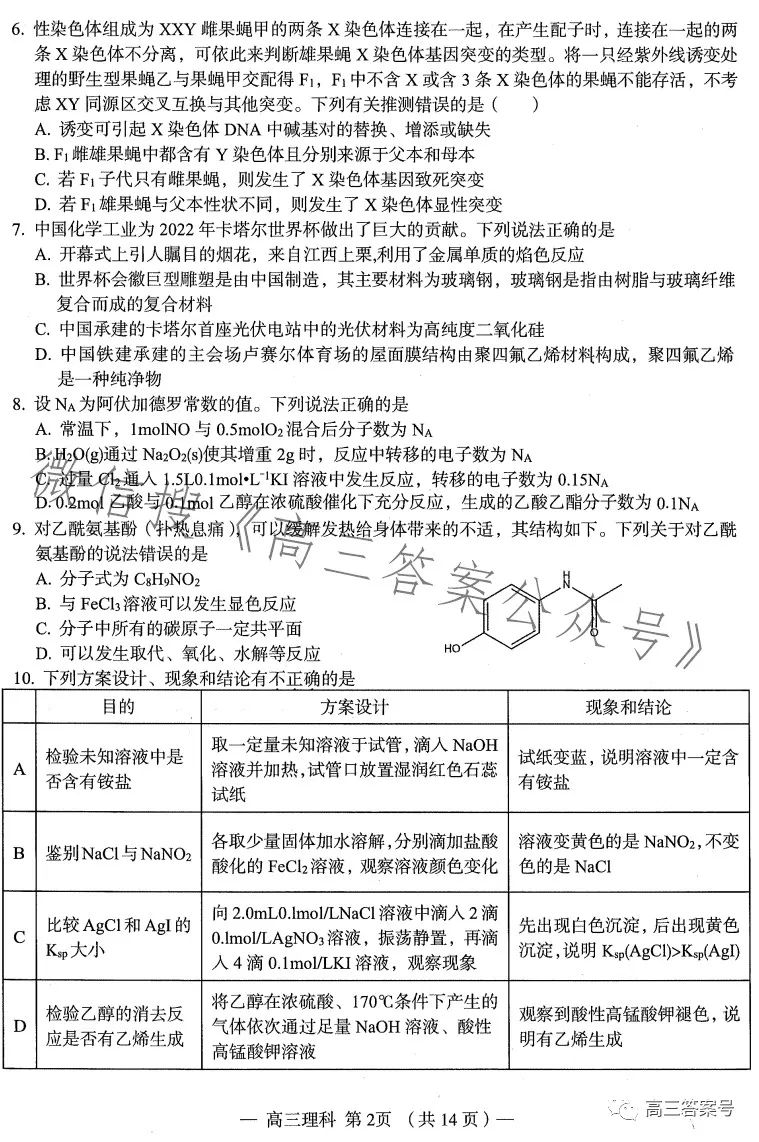 6. 性染色体组成为 XXY 雌果蝇甲的两条 X 染色体连接在一起，在产生配子时，连接在一起的两
条 X 染色体不分离，可依此来判断雄果蝇 X 染色体基因突变的类型。将一只经紫外线诱变处
理的野生型果蝇乙与果蝇甲交配得 F₁，F₁ 中不含 X 或含 3 条 X 染色体的果蝇不能存活，不考
虑 XY 同源区交叉互换与其他突变。下列有关推测错误的是（　　）
A. 诱变可引起 X 染色体 DNA 中碱基对的替换、增添或缺失
B. F₁ 雌雄果蝇中都含有 Y 染色体且分别来源于父本和母本
C. 若 F₁ 子代只有雌果蝇，则发生了 X 染色体基因致死突变
D. 若 F₁ 雄果蝇与父本性状不同，则发生了 X 染色体显性突变
7. 中国化学工业为 2022 年卡塔尔世界杯做出了巨大的贡献。下列说法正确的是
A. 开幕式上引人瞩目的烟花，来自江西上栗,利用了金属单质的焰色反应
B. 世界杯会徽巨型雕塑是由中国制造，其主要材料为玻璃钢，玻璃钢是指由树脂与玻璃纤维
复合而成的复合材料
C. 中国承建的卡塔尔首座光伏电站中的光伏材料为高纯度二氧化硅
D. 中国铁建承建的主会场卢赛尔体育场的屋面膜结构由聚四氟乙烯材料构成，聚四氟乙烯
是一种纯净物
8. 设 Nᴀ 为阿伏加德罗常数的值。下列说法正确的是
A. 常温下，1molNO 与 0.5molO₂ 混合后分子数为 Nᴀ
B. H₂O(g)通过 Na₂O₂(s)使其增重 2g 时，反应中转移的电子数为 Nᴀ
C. 过量 Cl₂ 通入 1.5L0.1mol•L⁻¹KI 溶液中发生反应，转移的电子数为 0.15Nᴀ
D. 0.2mol 乙酸与 0.1mol 乙醇在浓硫酸催化下充分反应，生成的乙酸乙酯分子数为 0.1Nᴀ
9. 对乙酰氨基酚（扑热息痛），可以缓解发热给身体带来的不适，其结构如下。下列关于对乙酰
氨基酚的说法错误的是
A. 分子式为 C₈H₉NO₂
B. 与 FeCl₃ 溶液可以发生显色反应
C. 分子中所有的碳原子一定共平面
D. 可以发生取代、氧化、水解等反应
HO
H
N
O
微信搜《高三答案公众号》
10. 下列方案设计、现象和结论有不正确的是
目的 方案设计 现象和结论
A
检验未知溶液中是
否含有铵盐
取一定量未知溶液于试管，滴入 NaOH
溶液并加热,试管口放置湿润红色石蕊
试纸
试纸变蓝，说明溶液中一定含
有铵盐
B
鉴别NaCl与NaNO₂
各取少量固体加水溶解,分别滴加盐酸
酸化的 FeCl₂ 溶液，观察溶液颜色变化
溶液变黄色的是 NaNO₂,不变
色的是 NaCl
C
比较 AgCl 和 AgI 的
Ksp 大小
向 2.0mL0.lmol/LNaCl 溶液中滴入 2 滴
0.lmol/LAgNO₃ 溶液，振荡静置，再滴
入 4 滴 0.1mol/LKI 溶液，观察现象
先出现白色沉淀，后出现黄色
沉淀,说明 Ksp(AgCl)>Ksp(AgI)
D
检验乙醇的消去反
应是否有乙烯生成
将乙醇在浓硫酸、170℃条件下产生的
气体依次通过足量 NaOH 溶液、酸性
高锰酸钾溶液
观察到酸性高锰酸钾褪色，说
明有乙烯生成
高三答案号
— 高三理科 第 2页 （共 14 页）—